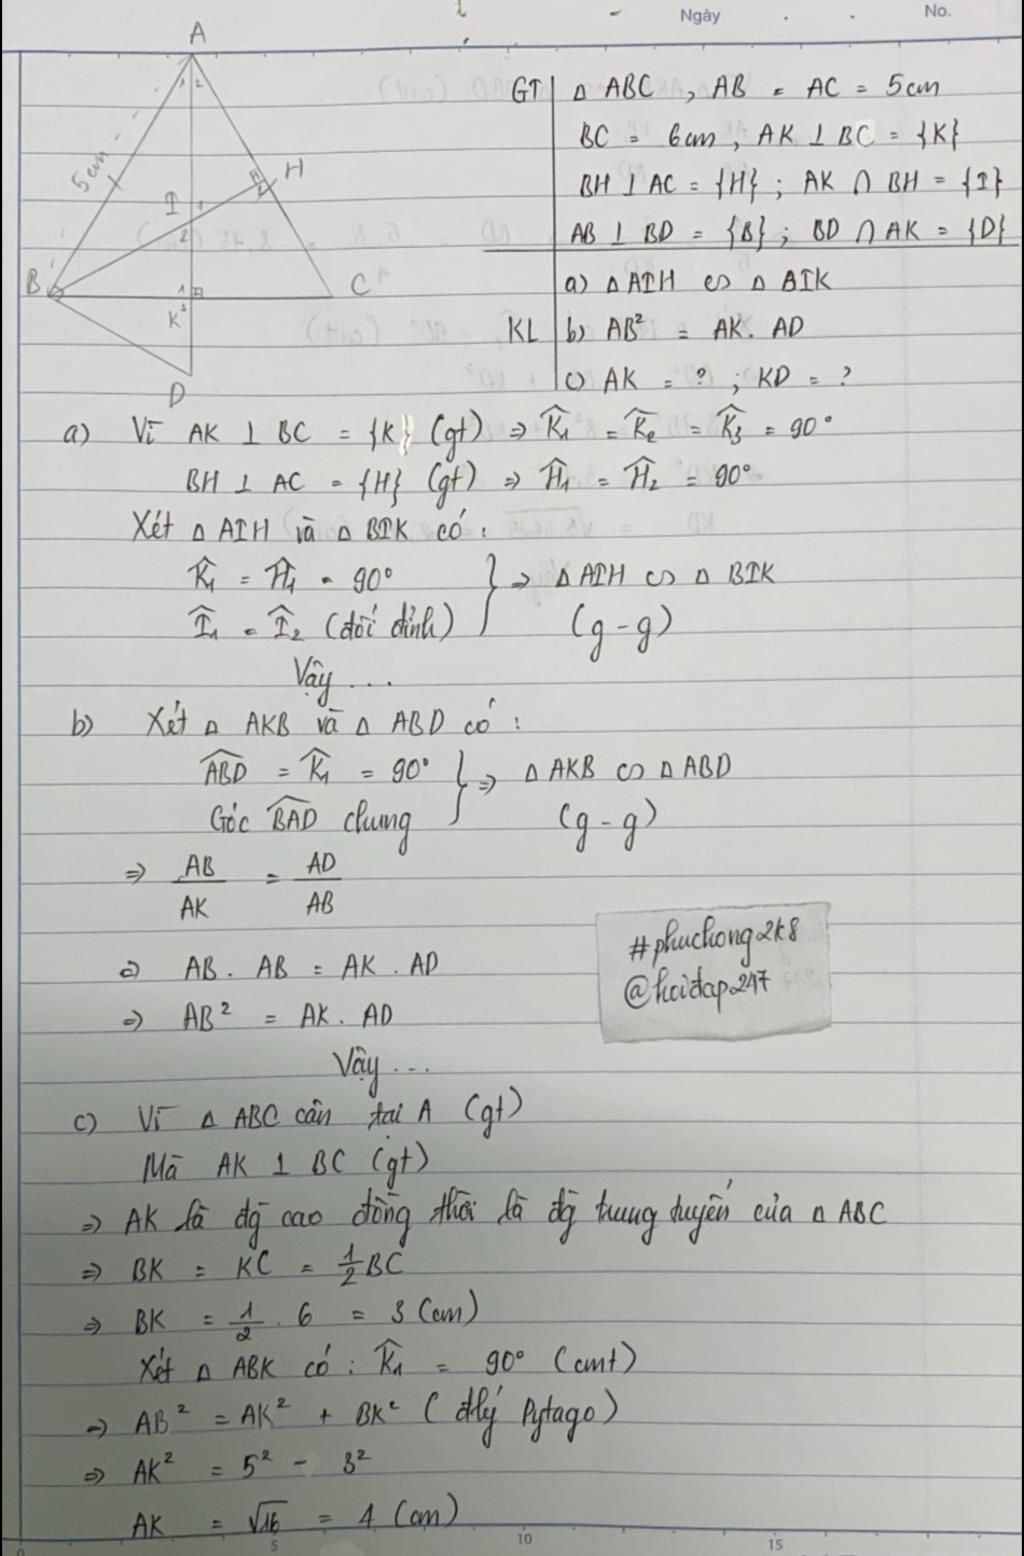 Ngày . . No.
A
1 2
5cm
H
I 1
2
B
C
1
K 3
D
GT | Δ ABC , AB = AC = 5cm
BC = 6cm , AK ⊥ BC = {K}
BH ⊥ AC = {H} ; AK ∩ BH = {I}
AB ⊥ BD = {B} ; BD ∩ AK = {D}
a) Δ AIH ∽ Δ BIK
KL | b) AB² = AK. AD
c) AK = ? ; KD = ?
a) Vì AK ⊥ BC = {K} (gt) ⇒ K̂₁ = K̂₂ = K̂₃ = 90°
BH ⊥ AC = {H} (gt) ⇒ Ĥ₁ = Ĥ₂ = 90°
Xét Δ AIH và Δ BIK có :
K̂₁ = Ĥ₁ = 90° } ⇒ Δ AIH ∽ Δ BIK
Î₁ = Î₂ (đối đỉnh) (g-g)
Vậy ...
b) Xét Δ AKB và Δ ABD có :
ABD = K̂₁ = 90° } ⇒ Δ AKB ∽ Δ ABD
Góc BAD chung (g-g)
⇒ AB/AK = AD/AB
⇒ AB . AB = AK . AD
⇒ AB² = AK. AD
#phuchong2k8
@hoidap247
Vậy ...
c) Vì Δ ABC cân tại A (gt)
Mà AK ⊥ BC (gt)
⇒ AK là đg cao đồng thời là đg trung tuyến của Δ ABC
⇒ BK = KC = 1/2 BC
⇒ BK = 1/2 . 6 = 3 (cm)
Xét Δ ABK có : K̂₁ = 90° (cmt)
⇒ AB² = AK² + BK² ( đlý Pytago)
⇒ AK² = 5² - 3²
AK = √16 = 4 (cm)
0 5 10 15